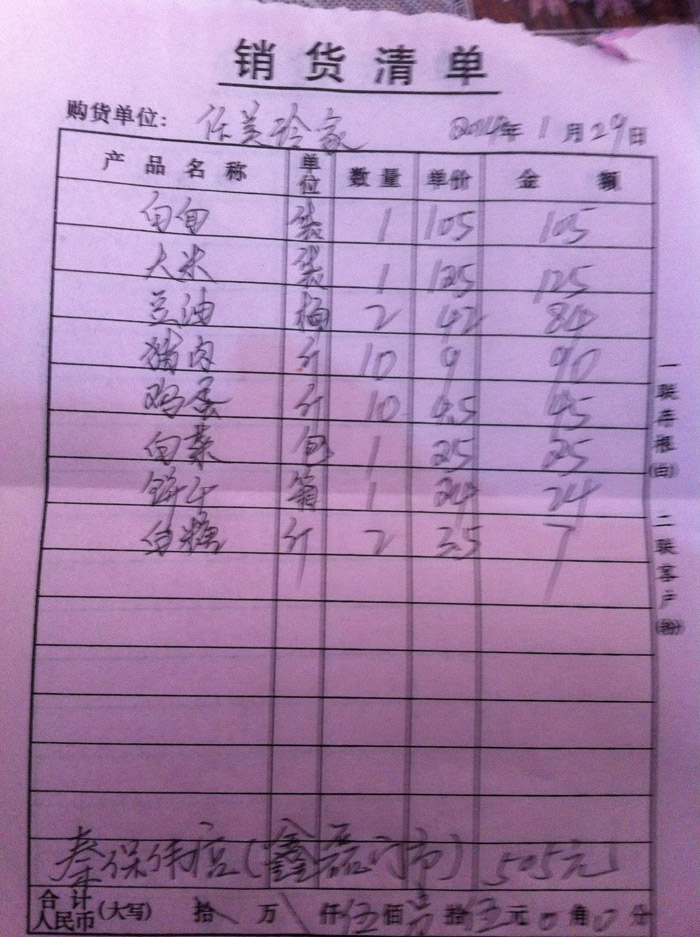 销货清单
购货单位: 任美玲家 2014年 1月29日
产品名称 单位 数量 单价 金额
白面 袋 1 105 105
大米 袋 1 125 125
豆油 桶 2 42 84
猪肉 斤 10 9 90
鸡蛋 斤 10 4.5 45
白菜 包 1 25 25
饼干 箱 1 24 24
白糖 斤 2 3.5 7
秦保伟店(鑫磊门市) 505元
合计人民币(大写) 拾 万 仟伍佰 拾伍元0角0分
一联存根(白) 二联客户(粉)